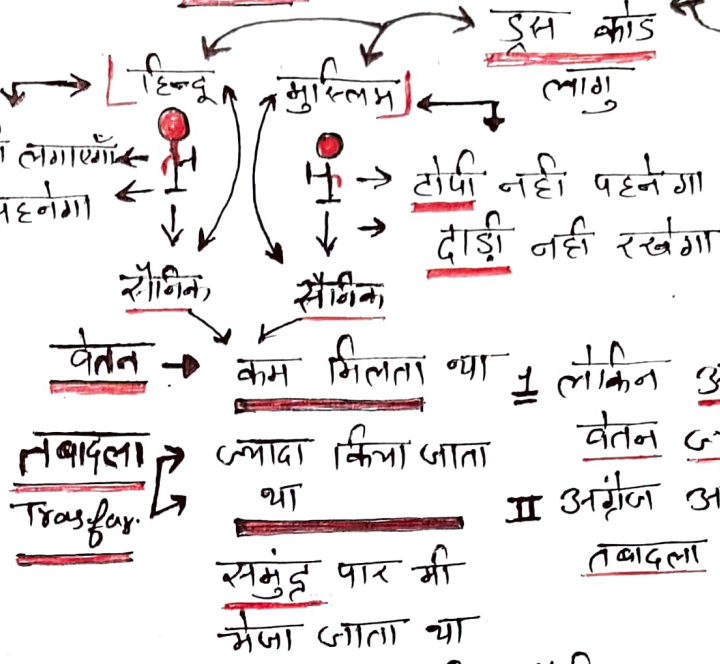 ड्रेस कोड
लागु
हिन्दू
मुस्लिम
लगाएगाँ
पहनेगा
टोपी नही पहनेगा
दाड़ी नही रखेगा
सैनिक
सैनिक
वेतन → कम मिलता था
I लेकिन
वेतन
तबादला
Trasfar.
ज्यादा किया जाता
था
II अंग्रेज
तबादला
समुंद्र पार भी
भेजा जाता था